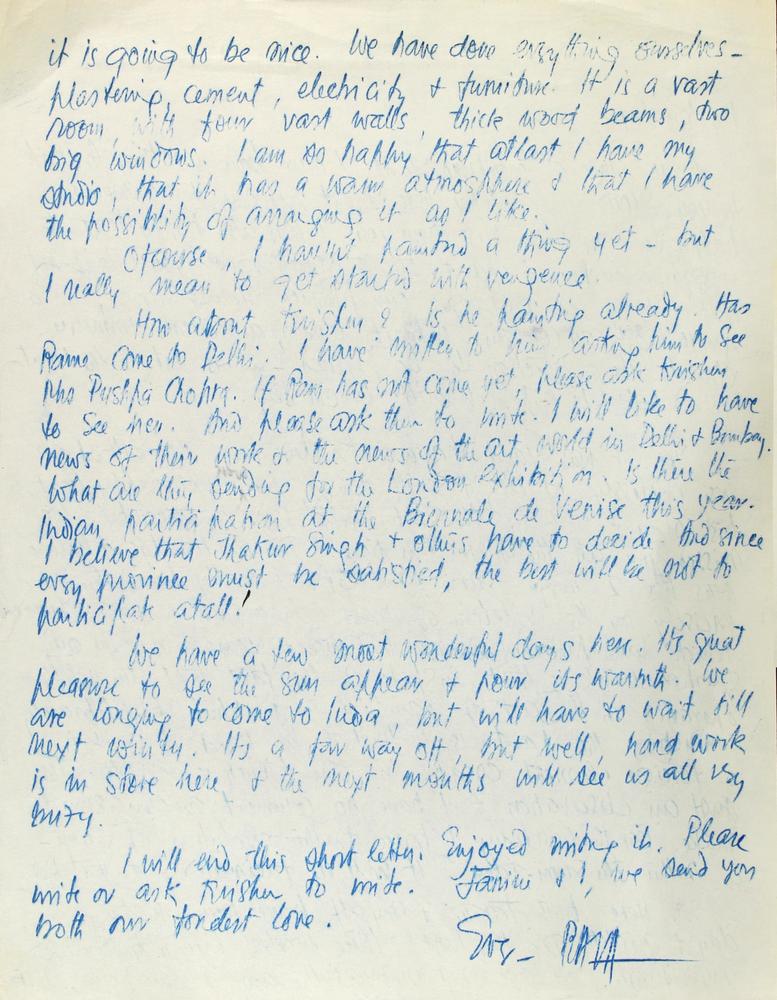 it is going to be nice. We have done everything ourselves -
plastering, cement, electricity & furniture. It is a vast
room, with four vast walls, thick wood beams, two
big windows. I am so happy that atlast I have my
studio, that it has a warm atmosphere & that I have
the possiblity of arranging it as I like.
Ofcourse, I havn't painted a thing yet - but
I really mean to get started with vengence.
How about Krishen? Is he painting already. Has
Rame come to Delhi. I have written to him asking him to see
Mrs Pushpa Chopra. If Ram has not come yet, please ask Krishen
to see her. And please ask them to write. I will like to have
news of their work & the news of the art world in Delhi & Bombay.
What are they sending for the London exhibition. Is there the
Indian participation at the Biennale de Venise this year.
I believe that Thakur Singh & others have to decide. And since
every province must be satisfied, the best will be not to
participate atall!
We have a few most wonderful days here. It's great
pleasure to see the sun appear & pour its warmth. We
are longing to come to India, but will have to wait till
next winter. Its a far way off, but well, hard work
is in store here, & the next months will see us all very
busy.
I will end this short letter. Enjoyed writing it. Please
write or ask Krishen to write. Janine & I, we send you
both our fondest love.
Ever - RAZA